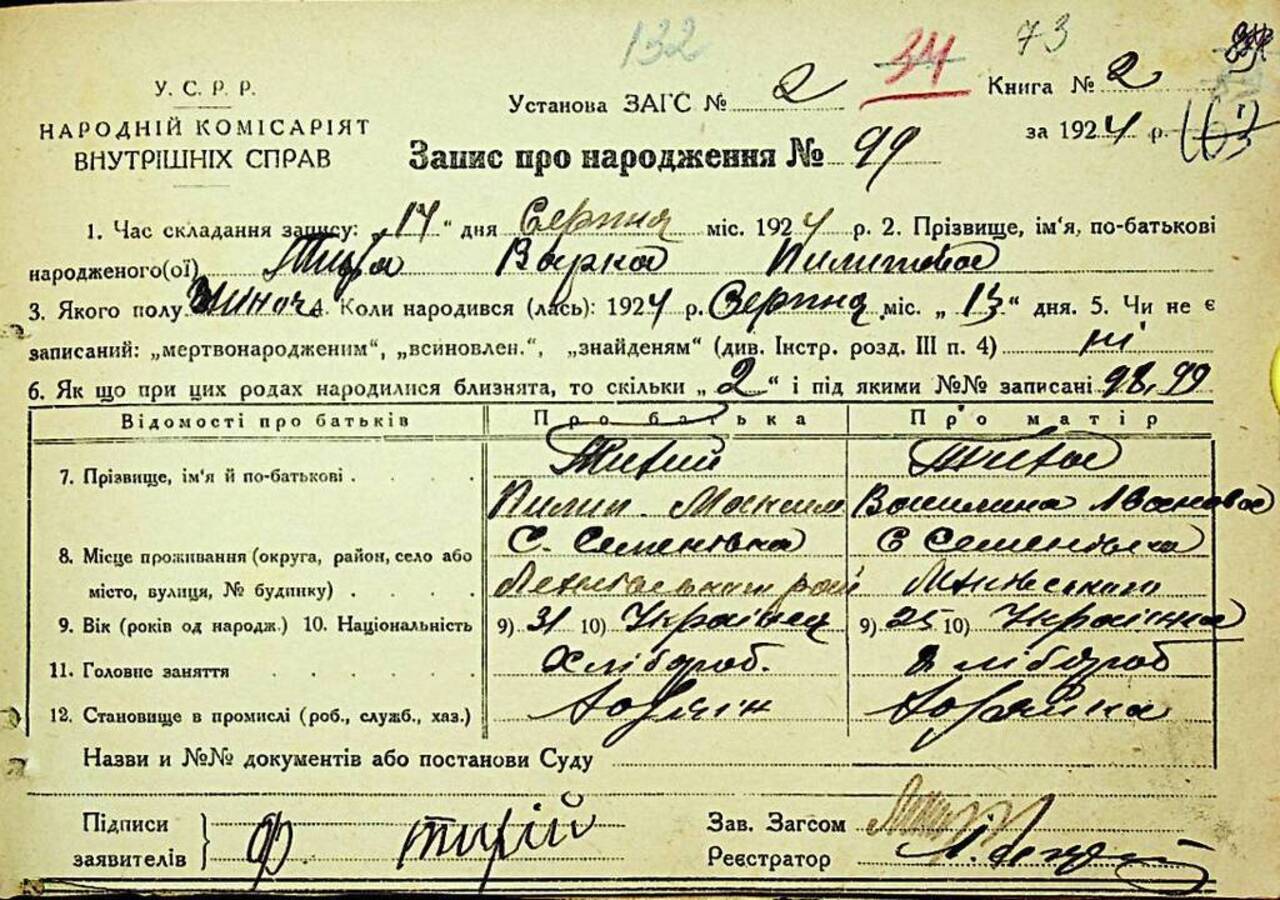 132 34 73
У. С. Р. Р.
НАРОДНІЙ КОМІСАРІЯТ
ВНУТРІШНІХ СПРАВ
Установа ЗАГС № 2
Книга № 2
за 1924 р.
Запис про народження № 99
1. Час складання запису: „17“ дня Серпня міс. 1924 р. 2. Прізвище, ім'я, по-батькові
народженого(ої) Тиха Варка Пилипова
3. Якого полу Жіноч. 4. Коли народився (лась): 1924 р. Серпня міс. „13“ дня. 5. Чи не є
записаний: „мертвонародженим“, „всиновлен.“, „знайденям“ (див. Інстр. розд. III п. 4) ні
6. Як що при цих родах народилися близнята, то скільки „2“ і під якими №№ записані 98, 99
Відомості про батьків Про батька Про матір
7. Прізвище, ім'я й по-батькові Тихий Тиха
Пилип Максим Василина Іванова
8. Місце проживання (округа, район, село або С. Семенівка С Семенівка
місто, вулиця, № будинку)
9. Вік (років од народж.) 10. Національність 9) 31 10) Українец 9) 25 10) Українка
11. Головне заняття Хлібороб. Хлібороб
12. Становище в промислі (роб., служб., хаз.)
Назви и №№ документів або постанови Суду
Підписи
заявителів Ф. тихій
Зав. Загсом
Реєстратор